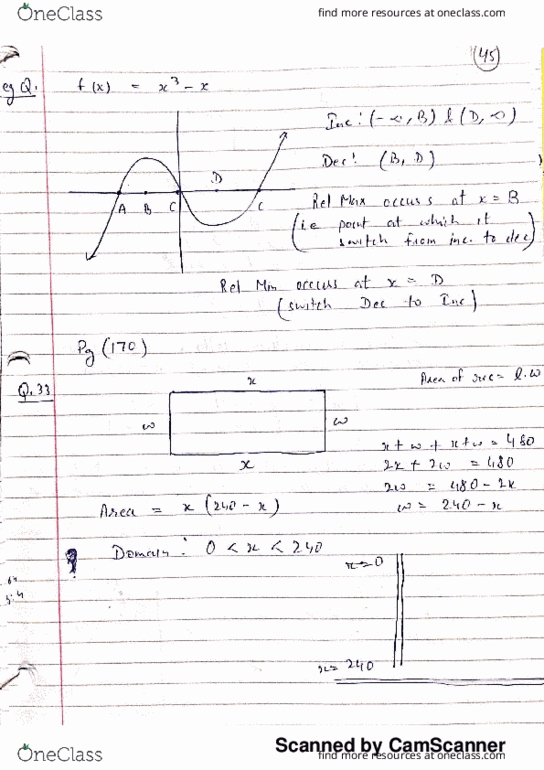 OneClass
find more resources at oneclass.com
45
eg Q. f(x) = x³ - x
Inc: (-∞, B) & (D, ∞)
Dec: (B, D)
A B C D C
Rel Max occurs at x = B
(i.e point at which it
switch from inc. to dec)
Rel Min occurs at x = D
(switch Dec to Inc)
Pg (170)
Q.33
Area of rec = l.w
x
w w
x
x + w + x + w = 480
2x + 2w = 480
2w = 480 - 2x
w = 240 - x
Area = x (240 - x)
Domain: 0 < x < 240
x = 0
x = 240
Scanned by CamScanner
OneClass
find more resources at oneclass.com